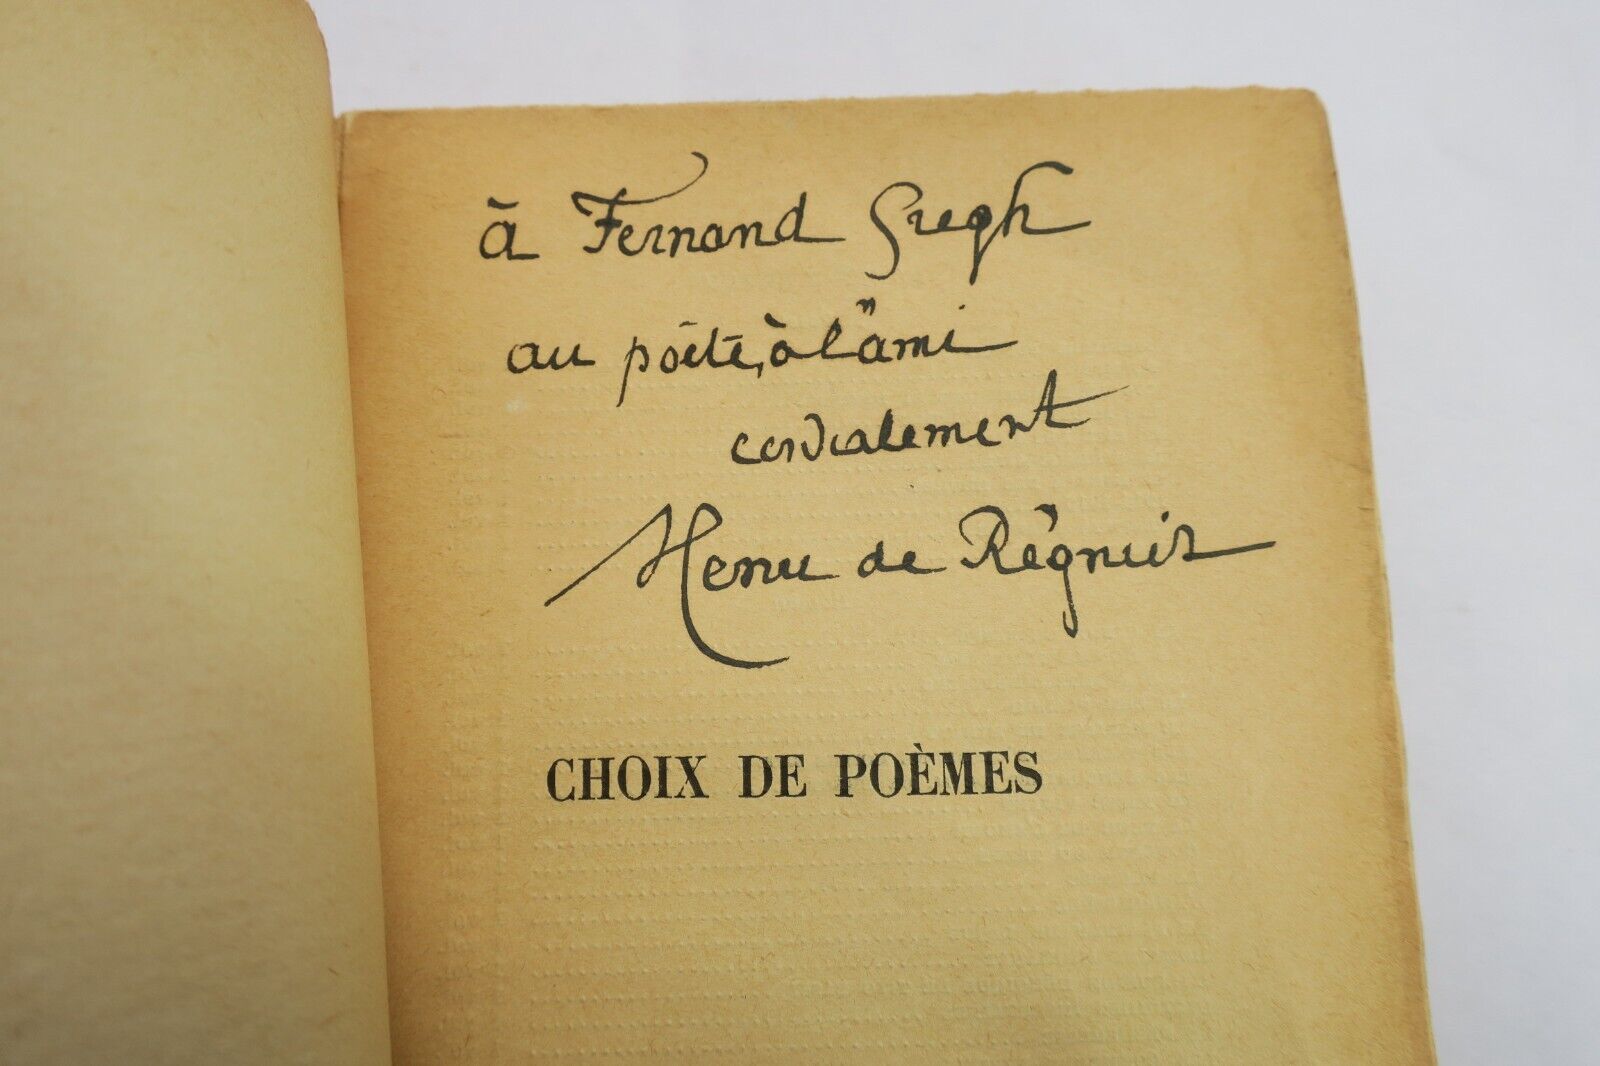 à Fernand Gregh
au poète, à l'ami
cordialement
Henri de Régnier
CHOIX DE POÈMES